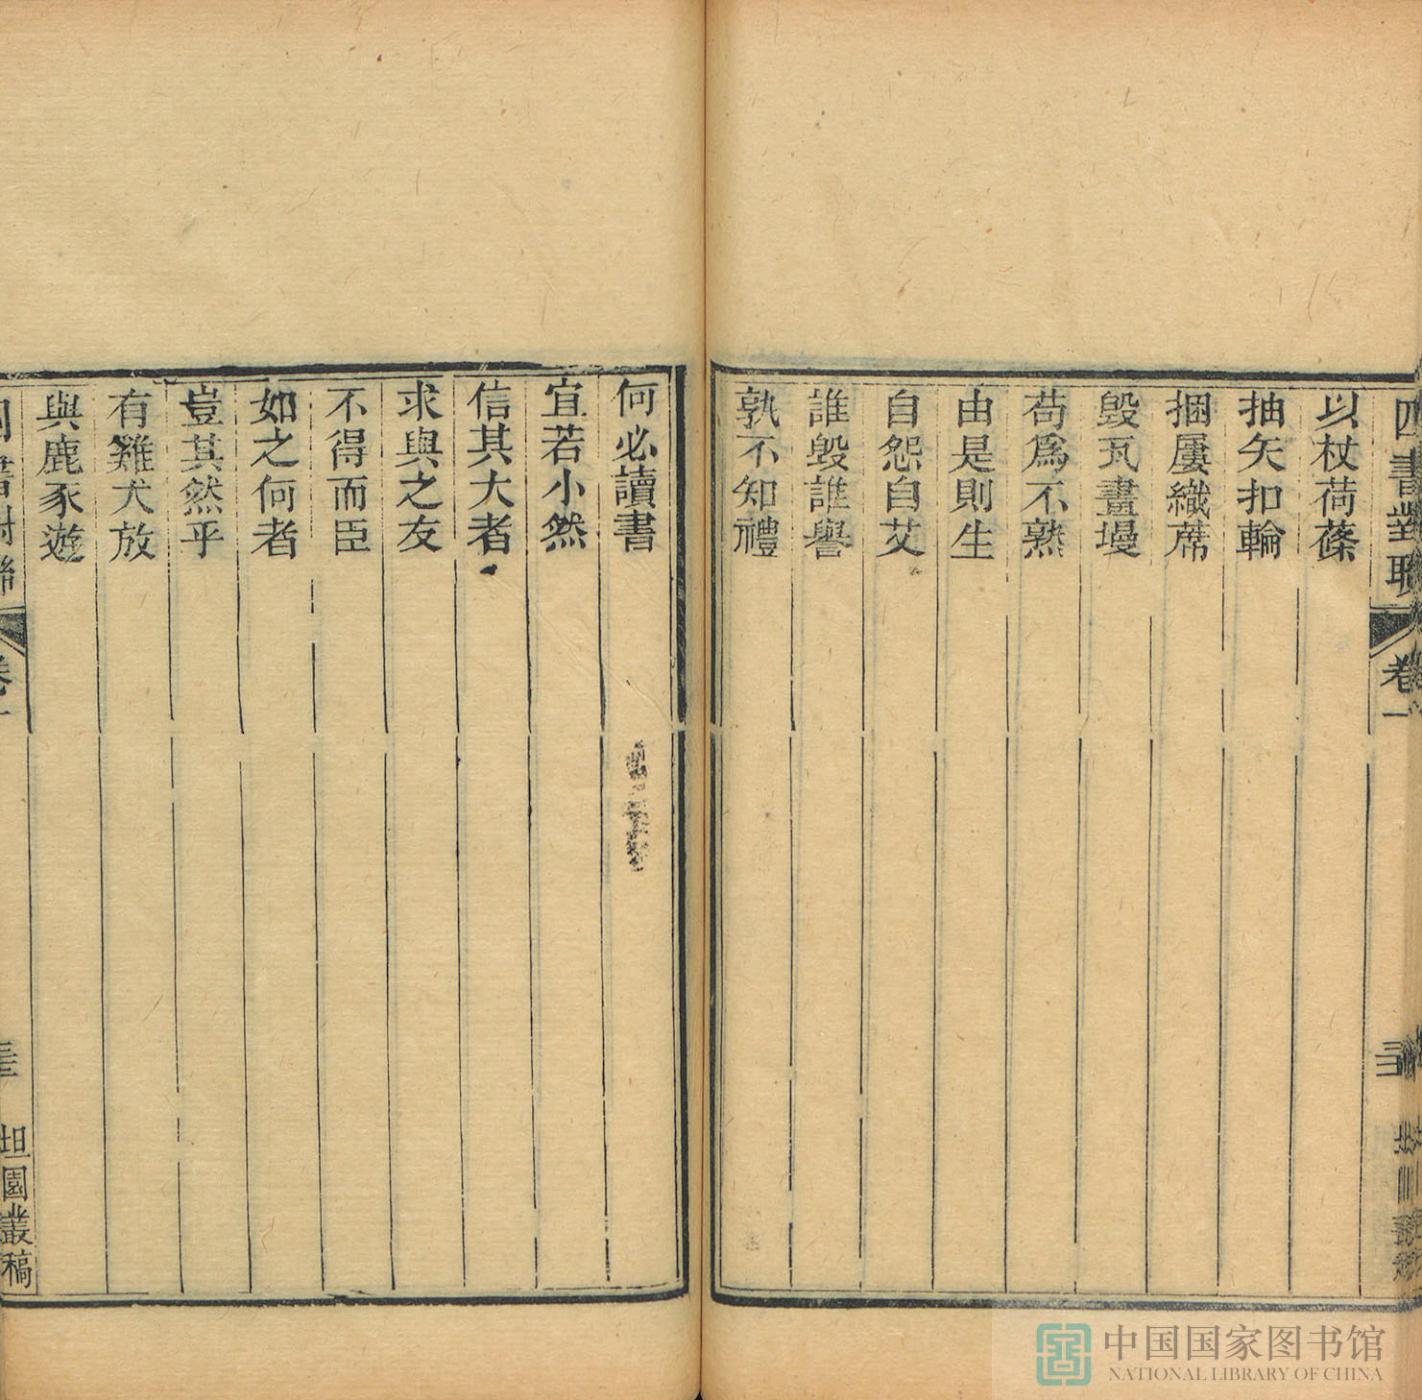 四書對聯
卷一
以杖荷蓧
抽矢扣輪
捆屨織蓆
毀瓦畫墁
茍爲不熟
由是則生
自怨自艾
誰毀誰譽
孰不知禮
何必讀書
宜若小然
信其大者
求與之友
不得而臣
如之何者
豈其然乎
有雞犬放
與鹿豕遊
四書對聯
卷一
坦園叢稿
中国国家图书馆
NATIONAL LIBRARY OF CHINA